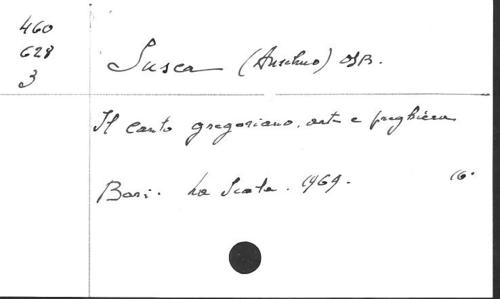 460
628
3
Susca (Anselmo) OSB.
Il canto gregoriano, arte e preghiera
Bari. La Scala. 1969. 16.